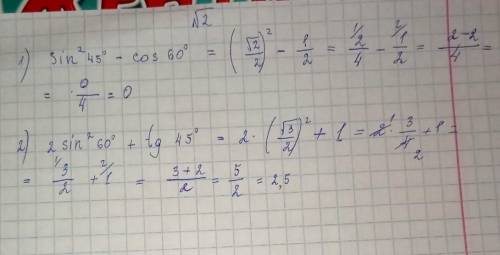 √2
1) sin²45° - cos 60° = (√2/2)² - 1/2 = 2/4 - 1/2 = 2-2/4 =
= 0/4 = 0
2) 2 sin²60° + tg 45° = 2 · (√3/2)² + 1 = 2 · 3/4 + 1 =
= 3/2 + 1 = 3+2/2 = 5/2 = 2,5